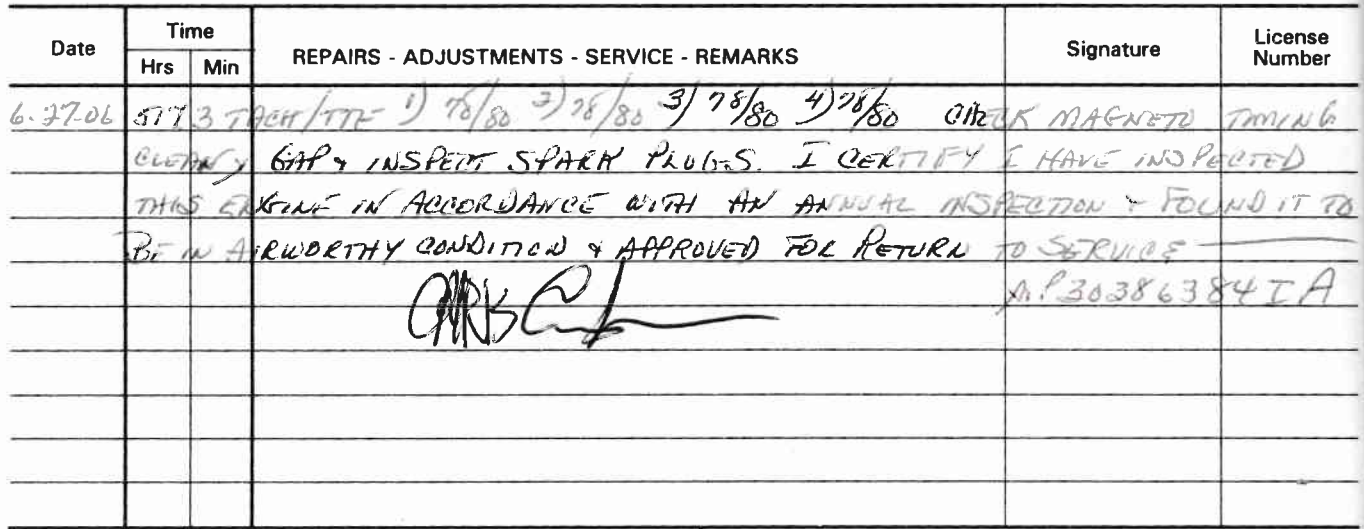 Date Time REPAIRS - ADJUSTMENTS - SERVICE - REMARKS Signature License Number
Hrs Min
6.27.06 517 3 TACH/TTE 1) 78/80 2) 78/80 3) 78/80 4) 78/80 CHECK MAGNETO TIMING
CLEAN, GAP & INSPECT SPARK PLUGS. I CERTIFY I HAVE INSPECTED
THIS ENGINE IN ACCORDANCE WITH AN ANNUAL INSPECTION & FOUND IT TO
BE IN AIRWORTHY CONDITION & APPROVED FOR RETURN TO SERVICE
A.P 30386384 IA